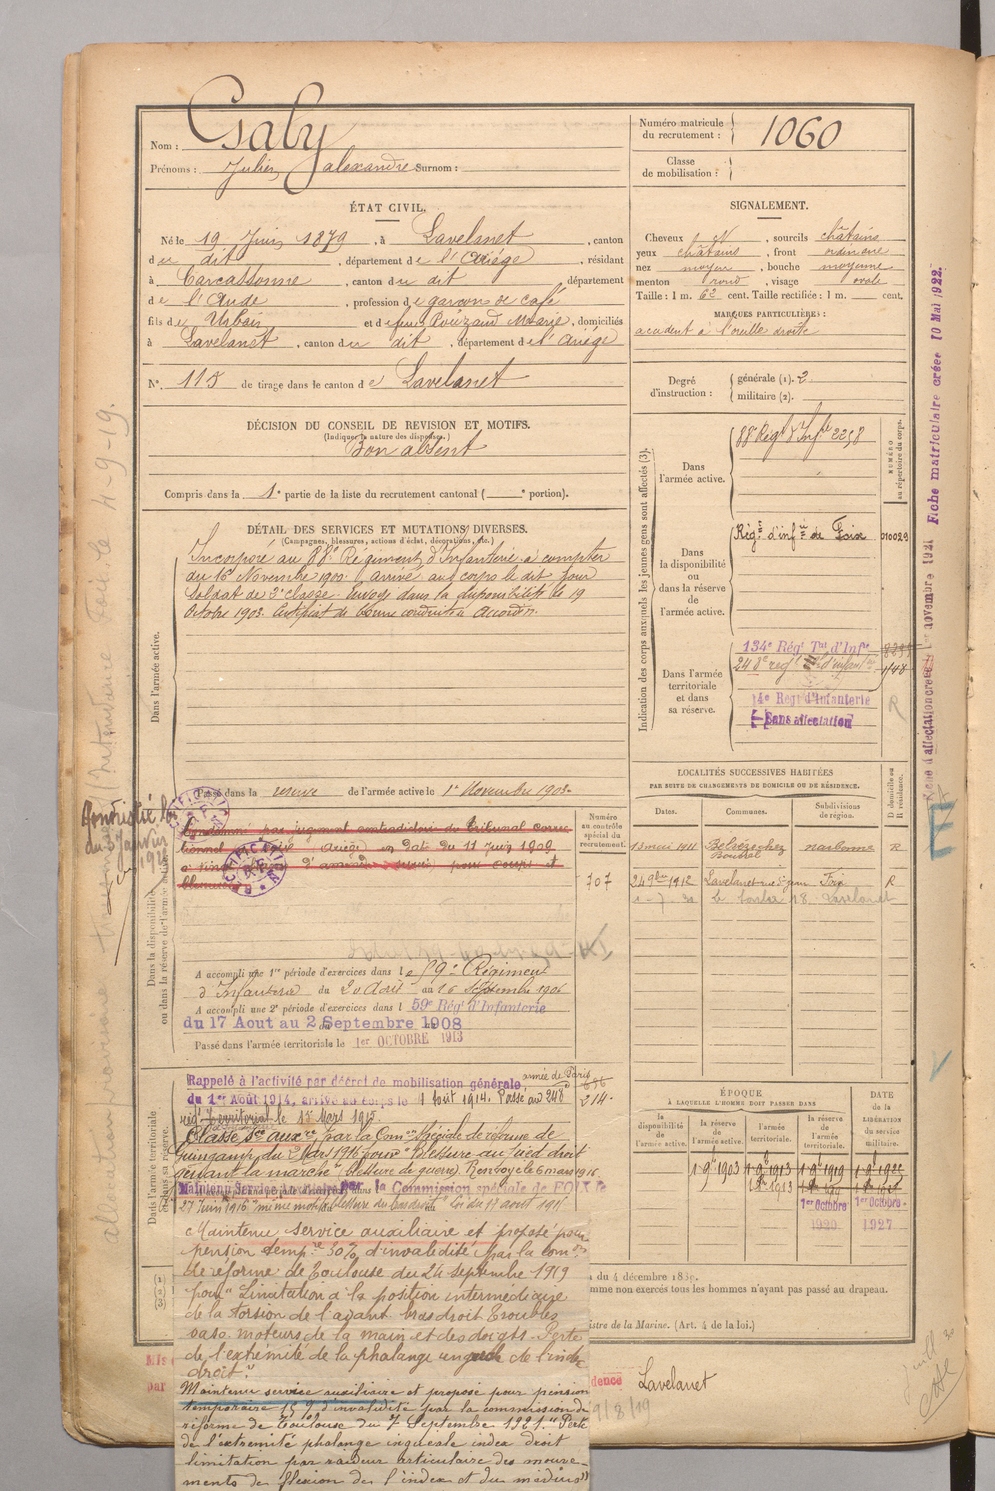 Nom : Gaby
Prénoms : Julien Alexandre Surnom :
Numéro matricule du recrutement : 1060
Classe de mobilisation :
ÉTAT CIVIL.
Né le 19 Juin 1879, à Lavelanet, canton
du dit, département de l'Ariège, résidant
à Carcassonne, canton du dit département
de l'Aude, profession de garçon de café
fils de Urbain et de feue Pouzaud Marie, domiciliés
à Lavelanet, canton du dit, département de l'Ariège
N° 115 de tirage dans le canton de Lavelanet
SIGNALEMENT.
Cheveux N, sourcils châtains
yeux châtains, front ordinaire
nez moyen, bouche moyenne
menton rond, visage ovale
Taille : 1 m. 62 cent. Taille rectifiée : 1 m. cent.
MARQUES PARTICULIÈRES :
accident à l'oreille droite
Degré d'instruction : générale (1). 2
militaire (2).
DÉCISION DU CONSEIL DE REVISION ET MOTIFS.
(Indiquer la nature des dispenses.)
Bon absent
Compris dans la 1e partie de la liste du recrutement cantonal ( e portion).
DÉTAIL DES SERVICES ET MUTATIONS DIVERSES.
(Campagnes, blessures, actions d'éclat, décorations, etc.)
Dans l'armée active.
Incorporé au 88e Régiment d'Infanterie à compter
du 16 Novembre 1900. Arrivé au corps le dit jour
Soldat de 2e classe. Envoyé dans la disponibilité le 19
Octobre 1903. Certificat de bonne conduite accordé.
Indication des corps auxquels les jeunes gens sont affectés (3).
NUMÉRO au répertoire du corps.
Dans l'armée active.
88e Régt d'Infie 2258
Dans la disponibilité ou dans la réserve de l'armée active.
Régt d'infie de Foix 010029
Dans l'armée territoriale et dans sa réserve.
134e Régt Tal d'Infie
248e régt d'infanterie
14e Regt d'Infanterie
Sans affectation
R
Passé dans la réserve de l'armée active le 1er Novembre 1903.
Dans la disponibilité ou dans la réserve de l'armée active
Condamné par jugement contradictoire du Tribunal correc-
tionnel Ariège) en date du 11 Juin 1909
d'amende pour coups et
blessures
Numéro au contrôle spécial du recrutement.
707
A accompli une 1re période d'exercices dans le 59e Régiment
d'Infanterie du Avril au 16 Septembre 1906
A accompli une 2e période d'exercices dans l 59e Régt d'Infanterie
du 17 Aout au 2 Septembre 1908
Passé dans l'armée territoriale le 1er OCTOBRE 1913
LOCALITÉS SUCCESSIVES HABITÉES
PAR SUITE DE CHANGEMENTS DE DOMICILE OU DE RÉSIDENCE.
Dates. Communes. Subdivisions de région. D domicile ou R résidence.
13 mai 1911 chez narbonne R
24 9bre 1912 Lavelanet Foix R
Dans l'armée territoriale et dans sa réserve.
Rappelé à l'activité par décret de mobilisation générale armée de Paris
du 1er Août 1914, arrivé au corps le 1 Août 1914. Passé au 248e 214.
rég. Territorial le 1er Mars 1915
Classé Sce auxre par la Comon Spéciale de réforme de
Guingamp du 2 Mars 1916 pour "Blessure au pied droit
gênant la marche" (Blessure de guerre). Renvoyé le 6 mars 1916.
Maintenu Service Auxiliaire par la Commission spéciale de FOIX le
27 Juin 1916 même motif Loi du 17 août 191
Maintenu service auxiliaire et proposé pour
pension tempre 30% d'invalidité par la comon
de réforme de Toulouse du 24 septembre 1919
pour "Limitation à la position intermédiaire
de la torsion de l'avant bras droit Troubles
vaso-moteurs de la main et des doigts. Perte
de l'extrémité de la phalange unguéale de l'index
droit."
Maintenu service auxiliaire et proposé pour pension
temporaire 15% d'invalidité par la commission de
réforme de Toulouse du 7 Septembre 1921. "Perte
de l'extrémité phalange inguéale index droit
limitation par raideur articulaire des mouve-
ments de flexion de l'index et du médius"
ÉPOQUE
À LAQUELLE L'HOMME DOIT PASSER DANS
DATE de la LIBÉRATION du service militaire.
la disponibilité de l'armée active. la réserve de l'armée active. l'armée territoriale. la réserve de l'armée territoriale.
1 9e 1903 1 9e 1913 1 9e 1919
1er Octobre 1920 1er Octobre 1927
du 4 décembre 18
mme non exercés tous les hommes n'ayant pas passé au drapeau.
istre de la Marine. (Art. 4 de la loi.)
dence Lavelanet
9/8/19
Mis
par
Fiche d'affectation créée le 1er novembre 1921 Fiche matriculaire créée 10 Mai 1922.
allocation provisoire Intendance Foix le 4-9-19.